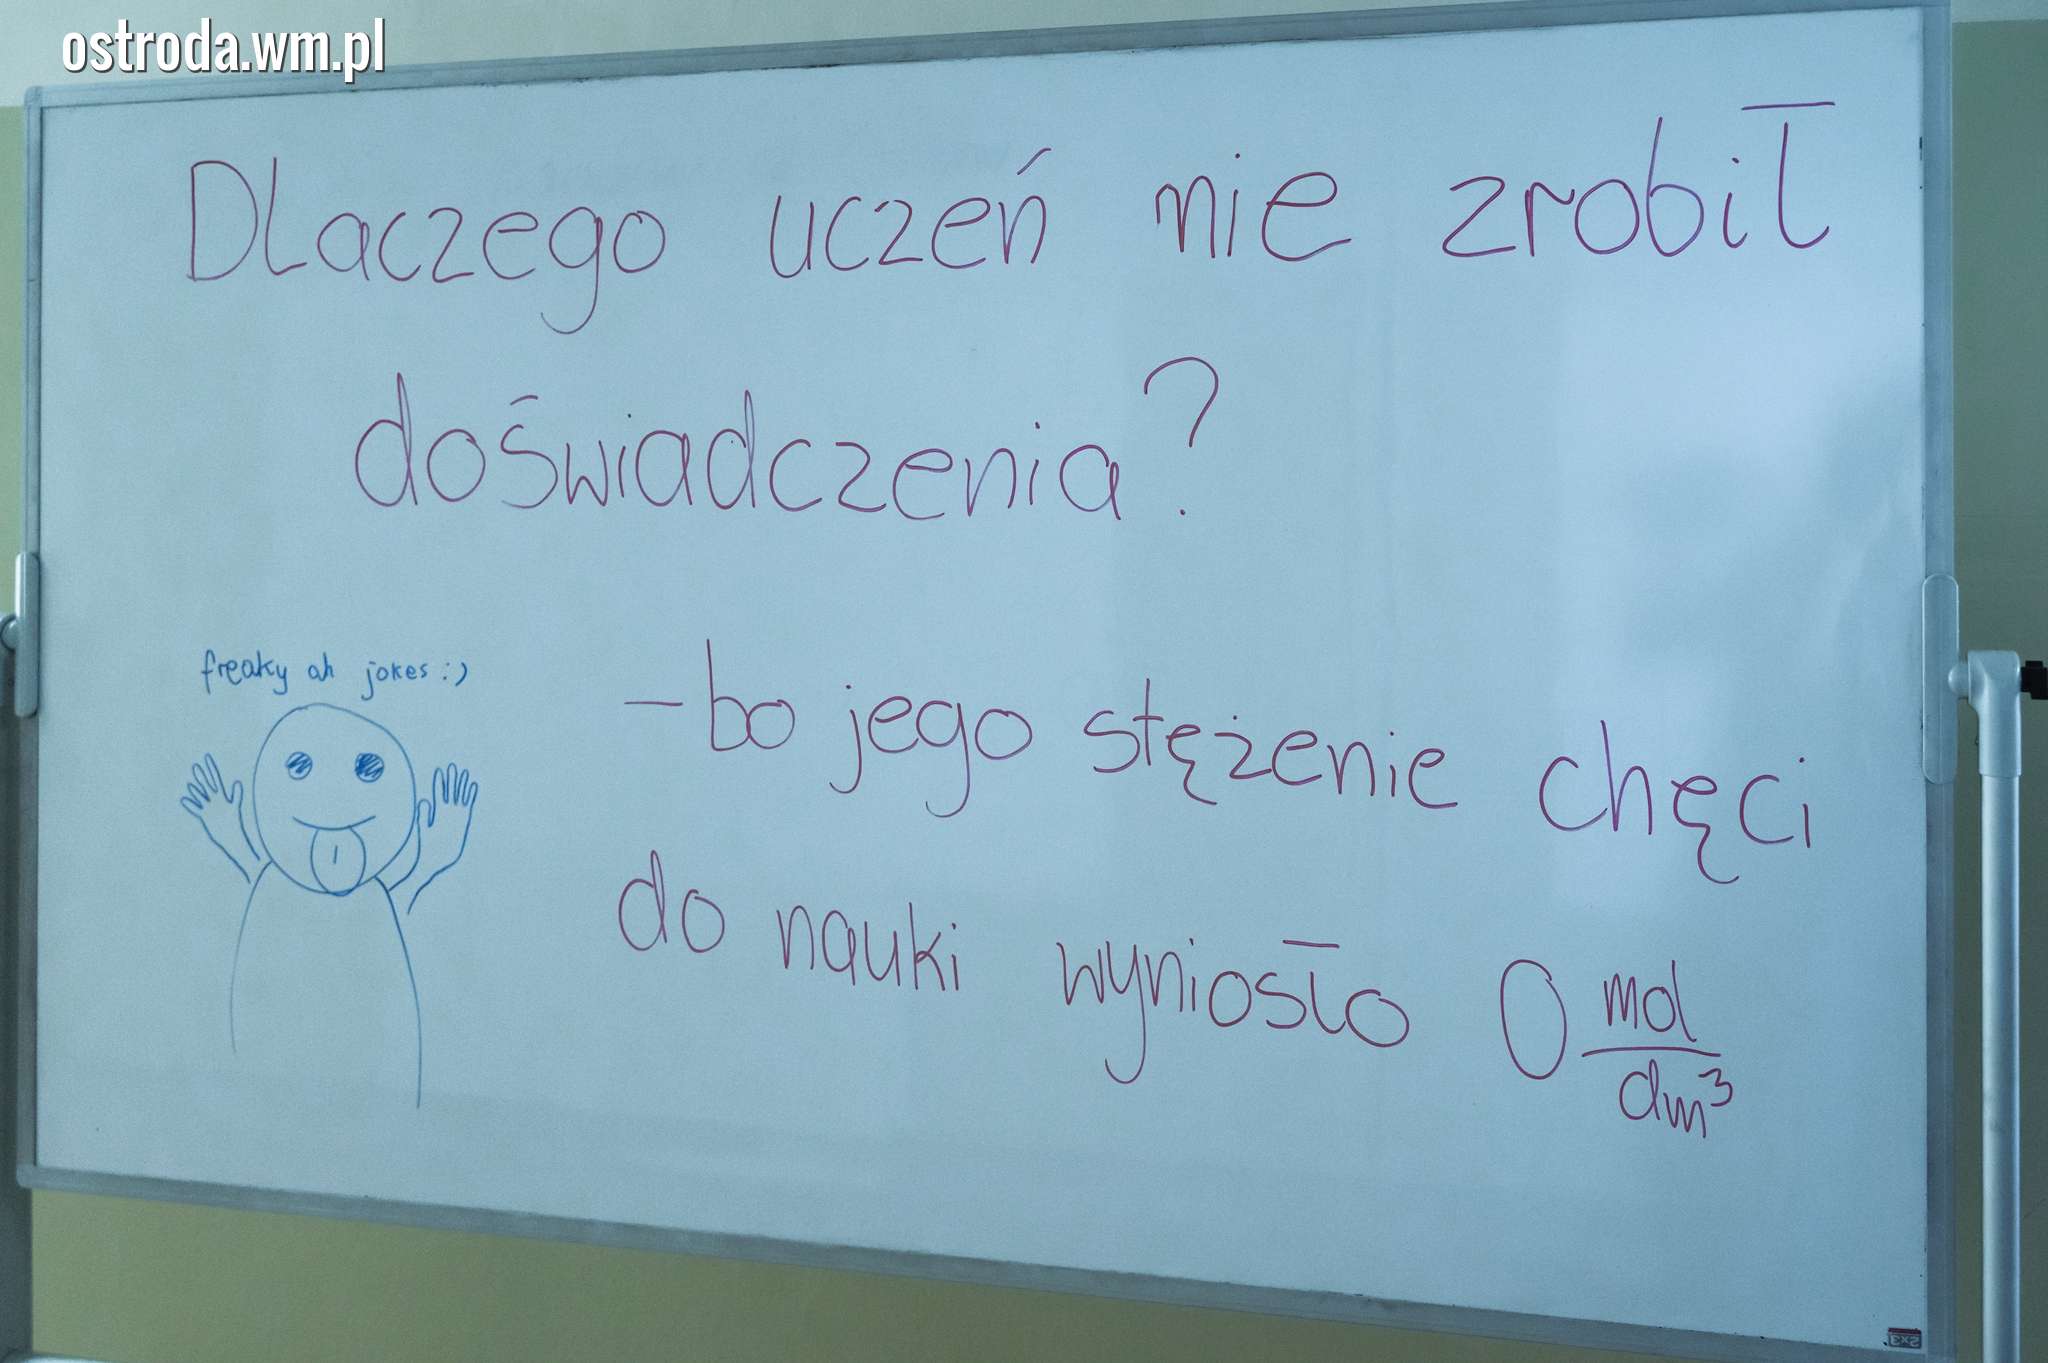 ostroda.wm.pl
Dlaczego uczeń nie zrobił
doświadczenia?
freaky ah jokes :)
- bo jego stężenie chęci
do nauki wyniosło 0 mol/dm³
2x3